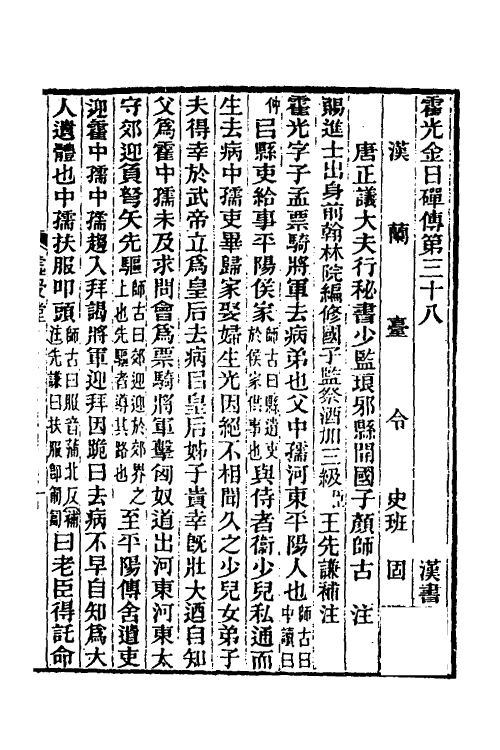 霍光金日磾傳第三十八 漢書
漢蘭臺令史班固
唐正議大夫行秘書少監琅邪縣開國子顏師古注
賜進士出身前翰林院編修國子監祭酒加三級臣王先謙補注
霍光字子孟票騎將軍去病弟也父中孺河東平陽人也師古曰中讀曰
仲㠯縣吏給事平陽侯家師古曰縣遣吏於侯家供事也與侍者衞少兒私通而
生去病中孺吏畢歸家娶婦生光因絕不相聞久之少兒女弟子
夫得幸於武帝立爲皇后去病㠯皇后姊子貴幸旣壯大迺自知
父爲霍中孺未及求問會爲票騎將軍擊匈奴道出河東河東太
守郊迎負弩矢先驅師古曰郊迎迎於郊界之上也先驅者導其路也至平陽傳舍遣吏
迎霍中孺中孺趨入拜謁將軍迎拜因跪曰去病不早自知爲大
人遺體也中孺扶服叩頭師古曰服音蒲北反補注先謙曰扶服卽匍匐曰老臣得託命